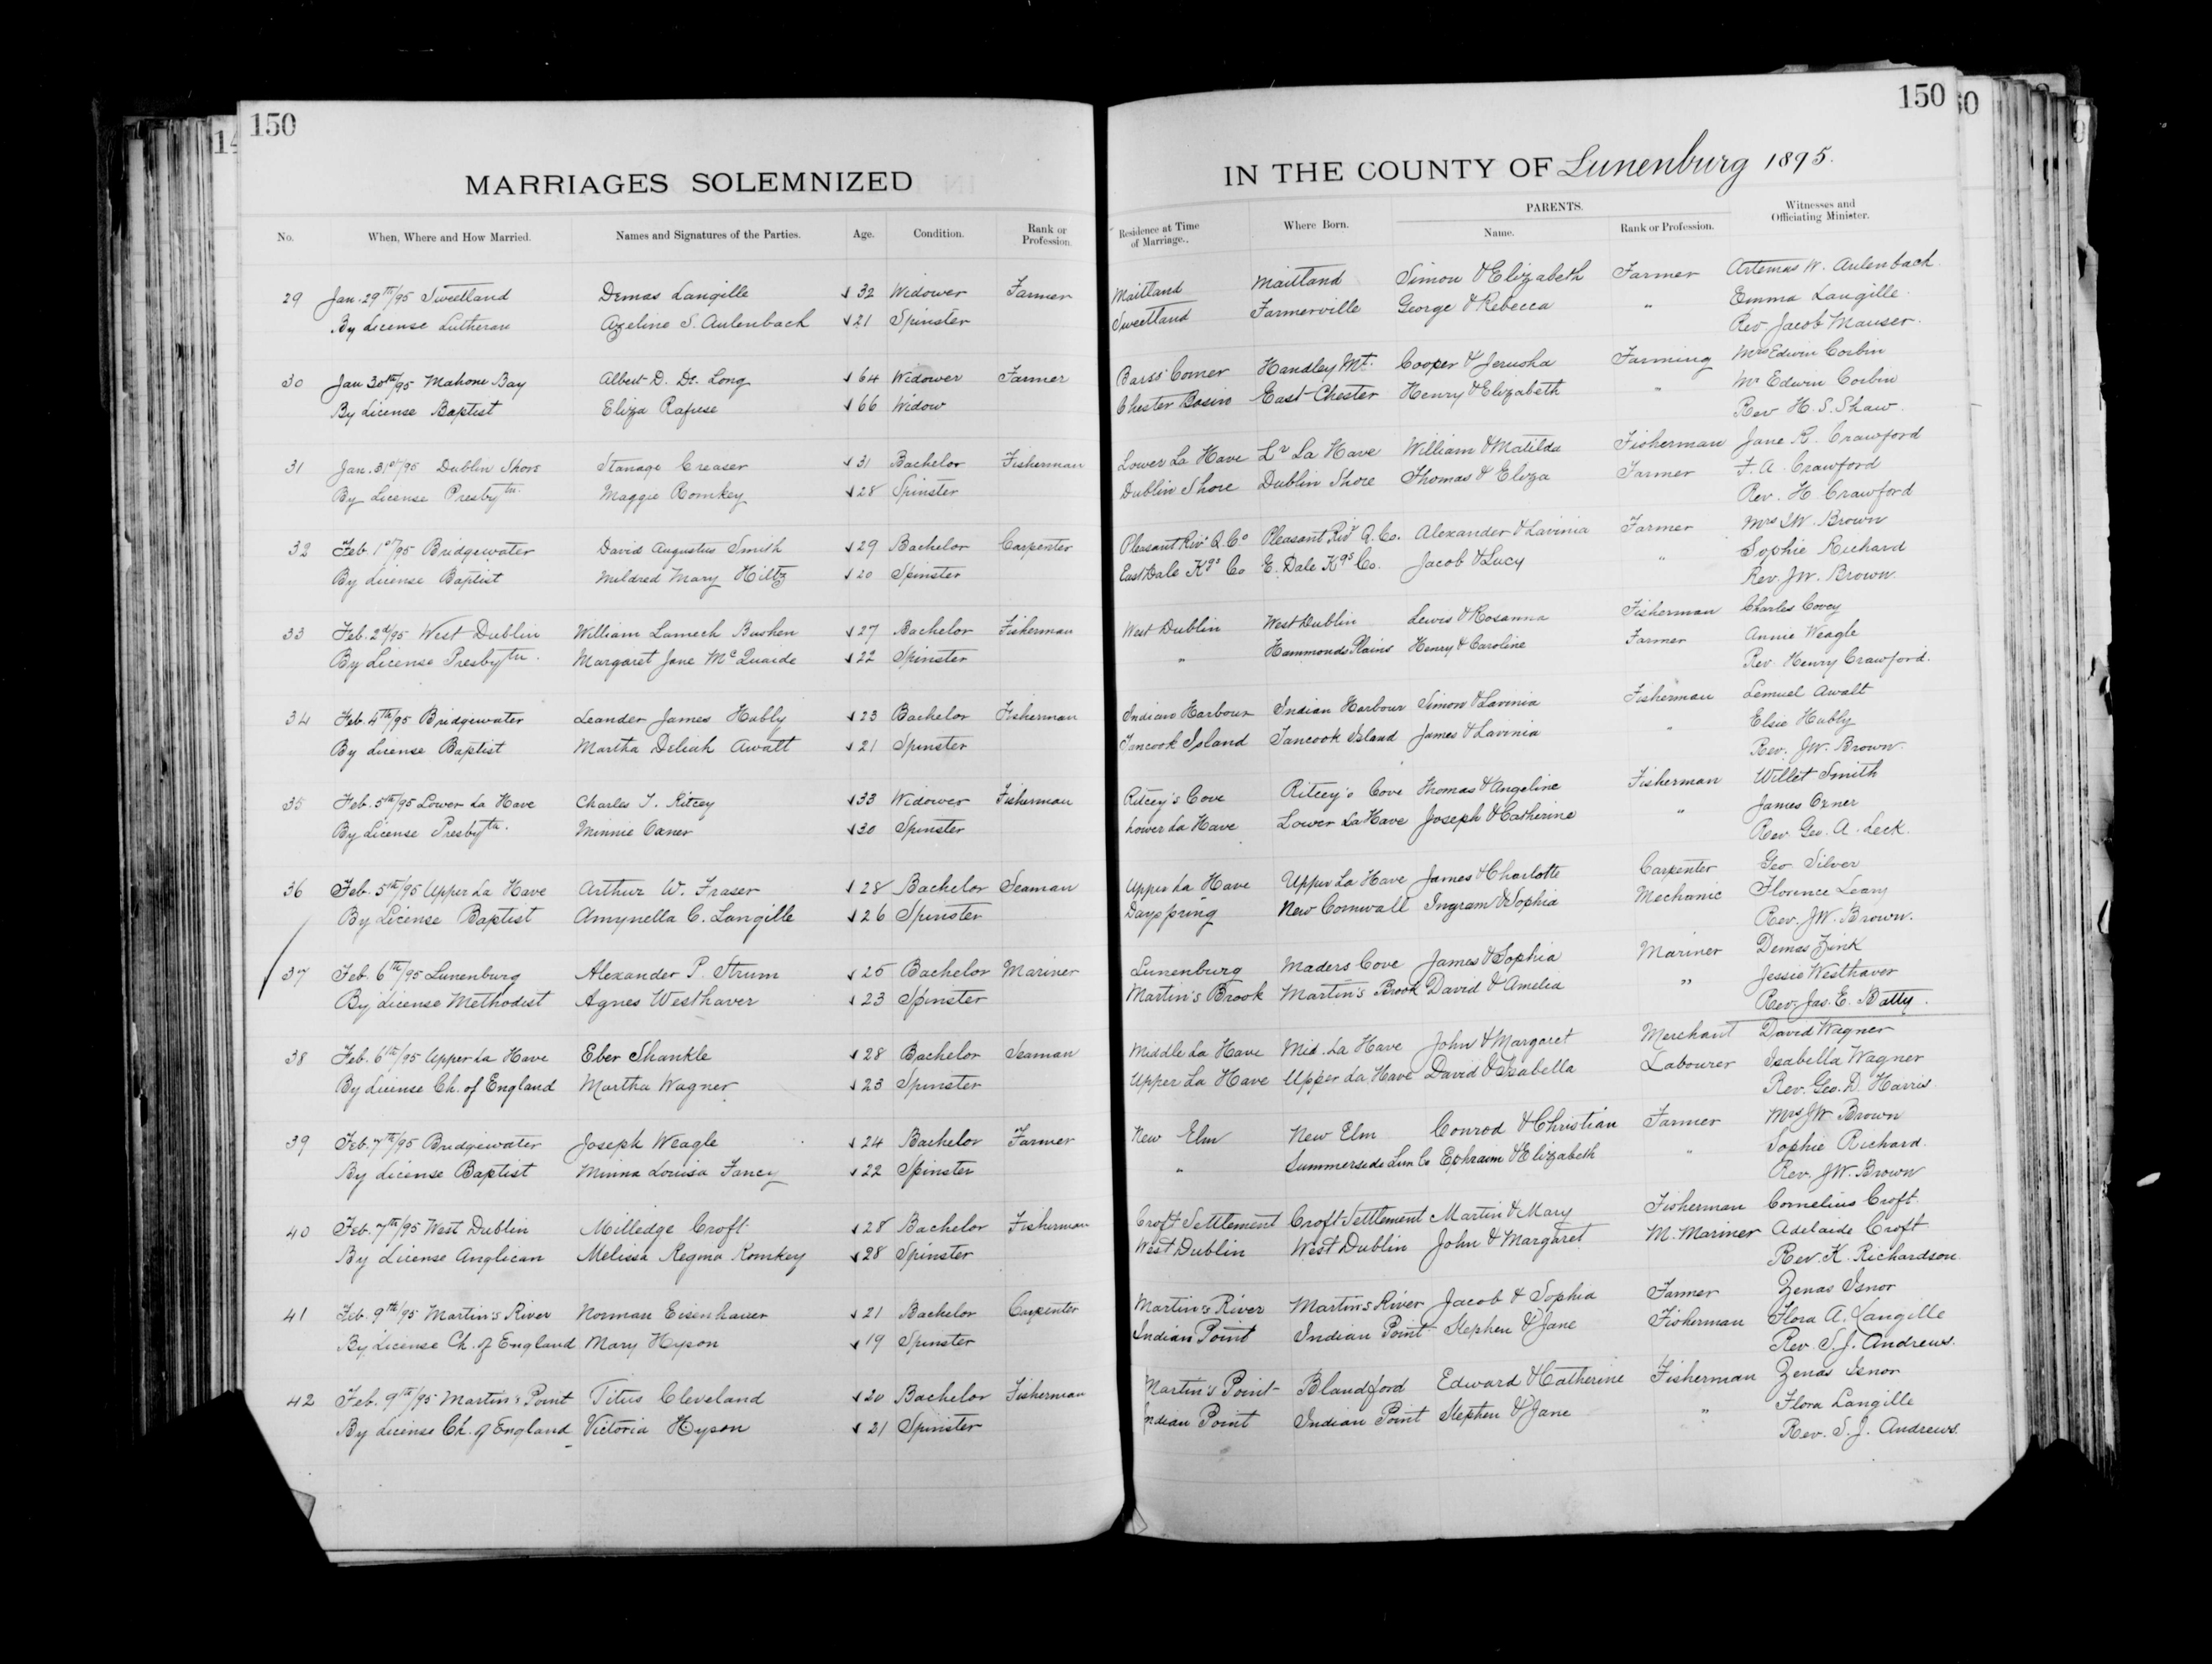 150
MARRIAGES SOLEMNIZED
No. When, Where and How Married. Names and Signatures of the Parties. Age. Condition. Rank or Profession.
29 Jan. 29th/95 Sweetland Demas Langille 32 Widower Farmer
By License Lutheran Azeline S. Aulenbach 21 Spinster
30 Jan 30th/95 Mahone Bay Albert D. De Long 64 Widower Farmer
By License Baptist Eliza Rafuse 66 Widow
31 Jan. 31st/95 Dublin Shore Stanage Creaser 31 Bachelor Fisherman
By License Presbytn. Maggie Romkey 28 Spinster
32 Feb. 1st/95 Bridgewater David Augustus Smith 29 Bachelor Carpenter
By License Baptist Mildred Mary Hiltz 20 Spinster
33 Feb. 2d/95 West Dublin William Lamech Bushen 27 Bachelor Fisherman
By License Presbytn. Margaret Jane McQuaide 22 Spinster
34 Feb. 4th/95 Bridgewater Leander James Hubly 23 Bachelor Fisherman
By License Baptist Martha Deliah Awalt 21 Spinster
35 Feb. 5th/95 Lower La Have Charles T. Ritcey 33 Widower Fisherman
By License Presbytn. Minnie Oxner 30 Spinster
36 Feb. 5th/95 Upper La Have Arthur W. Fraser 28 Bachelor Seaman
By License Baptist Amynella C. Langille 26 Spinster
37 Feb. 6th/95 Lunenburg Alexander P. Strum 25 Bachelor Mariner
By License Methodist Agnes Westhaver 23 Spinster
38 Feb. 6th/95 Upper La Have Eber Shankle 28 Bachelor Seaman
By License Ch. of England Martha Wagner 23 Spinster
39 Feb. 7th/95 Bridgewater Joseph Weagle 24 Bachelor Farmer
By License Baptist Minna Louisa Fancy 22 Spinster
40 Feb. 7th/95 West Dublin Milledge Croft 28 Bachelor Fisherman
By License Anglican Melissa Regina Romkey 28 Spinster
41 Feb. 9th/95 Martin's River Norman Eisenhauer 21 Bachelor Carpenter
By License Ch. of England Mary Hyson 19 Spinster
42 Feb. 9th/95 Martin's Point Titus Cleveland 20 Bachelor Fisherman
By License Ch. of England Victoria Hyson 21 Spinster
150
IN THE COUNTY OF Lunenburg 1895.
Residence at Time of Marriage. Where Born. PARENTS. Name. Rank or Profession. Witnesses and Officiating Minister.
Maitland Maitland Simon & Elizabeth Farmer Artemas W. Aulenbach
Sweetland Farmerville George & Rebecca " Emma Langille
Rev Jacob Mauser.
Barss' Corner Handley Mt. Cooper & Jerusha Farming Mrs Edwin Corbin
Chester Basin East Chester Henry & Elizabeth " Mr Edwin Corbin
Rev H. S. Shaw.
Lower La Have Lr La Have William & Matilda Fisherman Jane R. Crawford
Dublin Shore Dublin Shore Thomas & Eliza Farmer F. A. Crawford
Rev. H Crawford
Pleasant Rivr Q. Co Pleasant Rivr Q. Co. Alexander & Lavinia Farmer Mrs J.W. Brown
East Dale Kgs Co E. Dale Kgs Co. Jacob & Lucy " Sophie Richard
Rev. J.W. Brown.
West Dublin West Dublin Lewis & Rosanna Fisherman Charles Covey
" Hammonds Plains Henry & Caroline Farmer Annie Weagle
Rev Henry Crawford.
Indian Harbour Indian Harbour Simon & Lavinia Fisherman Lemuel Awalt
Tancook Island Tancook Island James & Lavinia " Elsie Hubly
Rev. J.W. Brown.
Ritcey's Cove Ritcey's Cove Thomas & Angeline Fisherman Willet Smith
Lower La Have Lower La Have Joseph & Catherine " James Oxner
Rev. Geo. A. Leck.
Upper La Have Upper La Have James & Charlotte Carpenter Geo Silver
Dayspring New Cornwall Ingram & Sophia Mechanic Florence Leary
Rev. J.W. Brown.
Lunenburg Maders Cove James & Sophia Mariner Demas Zink
Martin's Brook Martin's Brook David & Amelia " Jessie Westhaver
Rev. Jas. E. Batty.
Middle La Have Mid. La Have John & Margaret Merchant David Wagner
Upper La Have Upper La Have David & Isabella Labourer Isabella Wagner
Rev. Geo. D. Harris.
New Elm New Elm Conrod & Christian Farmer Mrs J.W Brown
" Summerside Lun Co Ephraim & Elizabeth " Sophie Richard.
Rev. J.W. Brown
Croft Settlement Croft Settlement Martin & Mary Fisherman Cornelius Croft
West Dublin West Dublin John & Margaret M. Mariner Adelaide Croft
Rev. K. Richardson
Martin's River Martin's River Jacob & Sophia Farmer Zenas Isnor
Indian Point Indian Point Stephen & Jane Fisherman Flora A. Langille
Rev. S.J. Andrews.
Martin's Point Blandford Edward & Catherine Fisherman Zenas Isnor
Indian Point Indian Point Stephen & Jane " Flora Langille
Rev. S.J. Andrews.